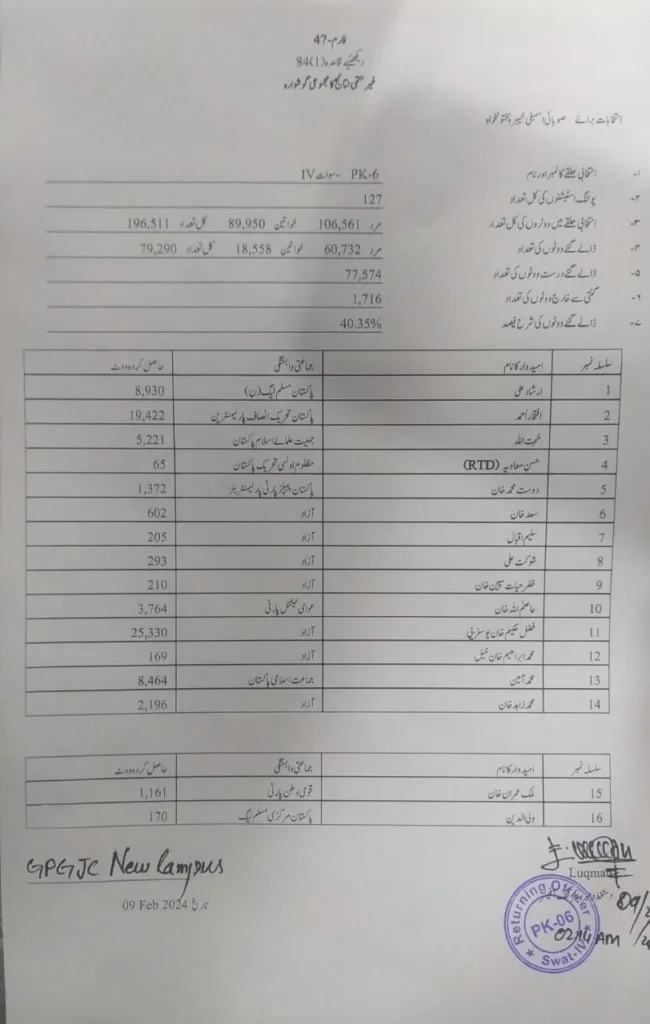 فارم-47
دیکھئیے قاعدہ (1)84
غیر حتمی نتائج کا مجموعی گوشوارہ
انتخابات برائے صوبائی اسمبلی خیبر پختونخواہ
۱- انتخابی حلقے کا نمبر اور نام PK-6 -سوات IV
۲- پولنگ اسٹیشنوں کی کل تعداد 127
۳- انتخابی حلقے میں ووٹروں کی کل تعداد مرد 106,561 خواتین 89,950 کل تعداد 196,511
۴- ڈالے گئے ووٹوں کی تعداد مرد 60,732 خواتین 18,558 کل تعداد 79,290
۵- ڈالے گئے درست ووٹوں کی تعداد 77,574
۶- گنتی سے خارج ووٹوں کی تعداد 1,716
۷- ڈالے گئے ووٹوں کی شرح فیصد 40.35%
سلسلہ نمبر امیدوار کا نام جماعتی وابستگی حاصل کردہ ووٹ
1 ارشاد علی پاکستان مسلم لیگ (ن) 8,930
2 افتخار احمد پاکستان تحریک انصاف پارلیمنٹرین 19,422
3 محبت اللہ جمعیت علمائے اسلام پاکستان 5,221
4 حسن معاویہ (RTD) مظلوم اولسی تحریک پاکستان 65
5 دوست محمد خان پاکستان پیپلز پارٹی پارلیمنٹرینز 1,372
6 سعد خان آزاد 602
7 سلیم اقبال آزاد 205
8 شوکت علی آزاد 293
9 ظفر حیات سپین خان آزاد 210
10 عاصم اللہ خان عوامی نیشنل پارٹی 3,764
11 فضل حکیم خان یوسفزئی آزاد 25,330
12 محمد ابراھیم خان خیل آزاد 169
13 محمد آمین جماعت اسلامی پاکستان 8,464
14 محمد زاہد خان آزاد 2,196
سلسلہ نمبر امیدوار کا نام جماعتی وابستگی حاصل کردہ ووٹ
15 ملک عمران خان قومی وطن پارٹی 1,161
16 ولی الدین پاکستان مرکزی مسلم لیگ 170
GPGJC New Campus
تاریخ 09 Feb 2024
Returning Officer
PK-06
Swat-IV
02:14 AM